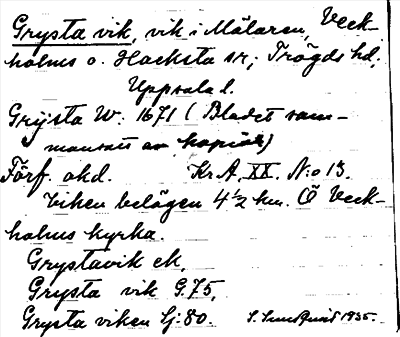 Grysta vik, vik i Mälaren, Veck-
holms o. Hacksta sr; Trögds hd,
Uppsala l.
Grÿsta W. 1671 (Bladet sam-
mansatt av kopior)
Förf. okd. Kr. A. XX. No 13.
Viken belägen 4 1/2 km. Ö Veck-
holms kyrka.
Grystavik ek,
Grysta vik G. 75,
Grysta viken Lj: 80. S. Sundquist 1935.